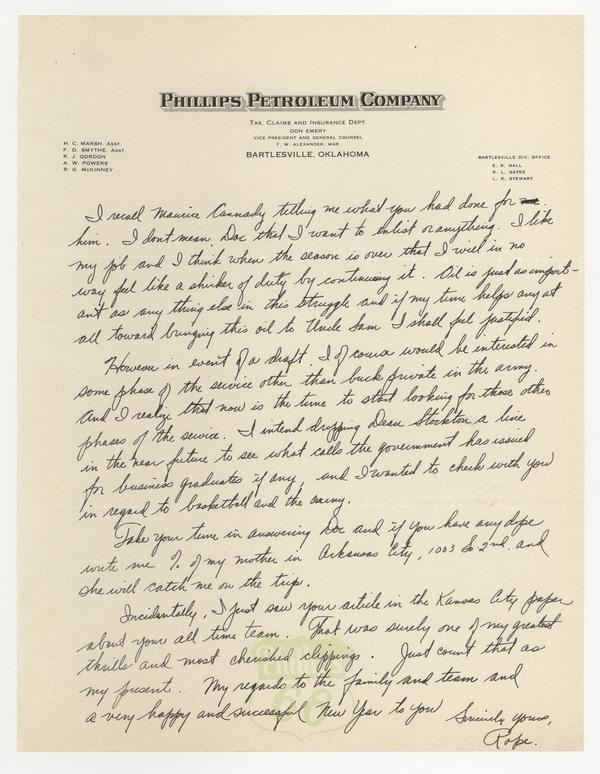 PHILLIPS PETROLEUM COMPANY
TAX, CLAIMS AND INSURANCE DEPT.
DON EMERY
VICE PRESIDENT AND GENERAL COUNSEL
F. W. ALEXANDER, MGR
BARTLESVILLE, OKLAHOMA
H. C. MARSH, ASST.
F. D. SMYTHE, ASST.
R. J. GORDON
A. W. POWERS
R. G. McKINNEY
BARTLESVILLE DIV. OFFICE
E. R. NALL
R. L. GATES
L. K. STEWART
I recall Maurice Cannady telling me what you had done for
him. I dont mean, Doc that I want to enlist or anything. I like
my job and I think when the season is over that I will in no
way feel like a shirker of duty by continuing it. Oil is just as import-
ant as any thing else in this struggle and if my time helps any at
all toward bringing this oil to Uncle Sam I shall feel justified.
However in event of a draft I of course would be interested in
some phase of the service other than buck private in the army.
And I realize that now is the time to start looking for those other
phases of the service. I intend dropping Dean Stockton a line
in the near future to see what calls the government has issued
for business graduates if any, and I wanted to check with you
in regard to basketball and the army.
Take your time in answering Doc and if you have any dope
write me % of my mother in Arkansas City, 1003 So 2nd. and
she will catch me on the trip.
Incidentally, I just saw your article in the Kansas City paper
about your all time team. That was surely one of my greatest
thrills and most cherished clippings. Just count that as
my present. My regards to the family and team and
a very happy and successful New Year to you
Sincerely yours,
Rope.
PHILLIPS
66